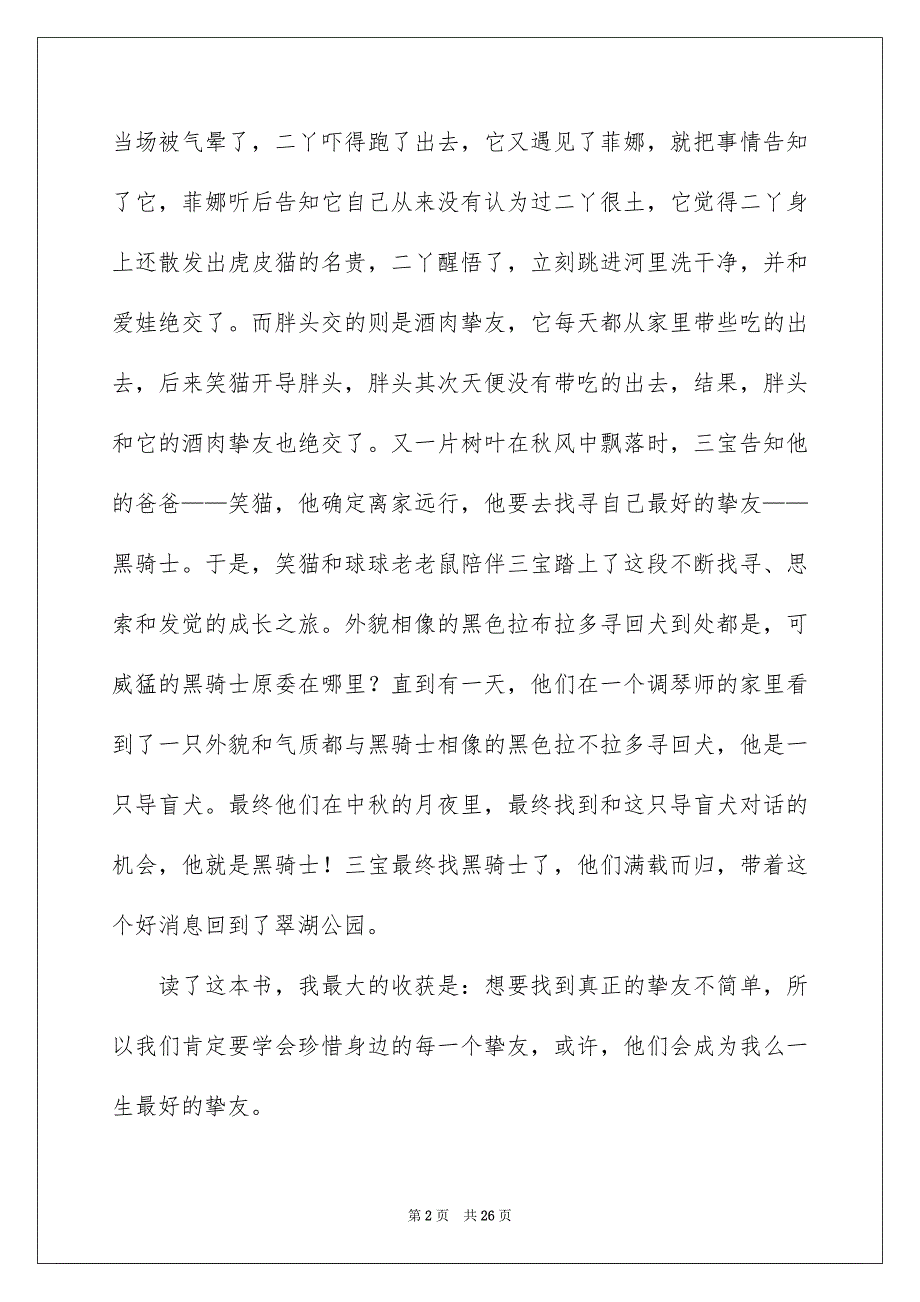 当场被气晕了，二丫吓得跑了出去，它又遇见了菲娜，就把事情告知
了它，菲娜听后告知它自己从来没有认为过二丫很土，它觉得二丫身
上还散发出虎皮猫的名贵，二丫醒悟了，立刻跳进河里洗干净，并和
爱娃绝交了。而胖头交的则是酒肉挚友，它每天都从家里带些吃的出
去，后来笑猫开导胖头，胖头其次天便没有带吃的出去，结果，胖头
和它的酒肉挚友也绝交了。又一片树叶在秋风中飘落时，三宝告知他
的爸爸——笑猫，他确定离家远行，他要去找寻自己最好的挚友——
黑骑士。于是，笑猫和球球老老鼠陪伴三宝踏上了这段不断找寻、思
索和发觉的成长之旅。外貌相像的黑色拉布拉多寻回犬到处都是，可
威猛的黑骑士原委在哪里？直到有一天，他们在一个调琴师的家里看
到了一只外貌和气质都与黑骑士相像的黑色拉不拉多寻回犬，他是一
只导盲犬。最终他们在中秋的月夜里，最终找到和这只导盲犬对话的
机会，他就是黑骑士！三宝最终找黑骑士了，他们满载而归，带着这
个好消息回到了翠湖公园。
读了这本书，我最大的收获是：想要找到真正的挚友不简单，所
以我们肯定要学会珍惜身边的每一个挚友，或许，他们会成为我么一
生最好的挚友。
第 2 页 共 26 页